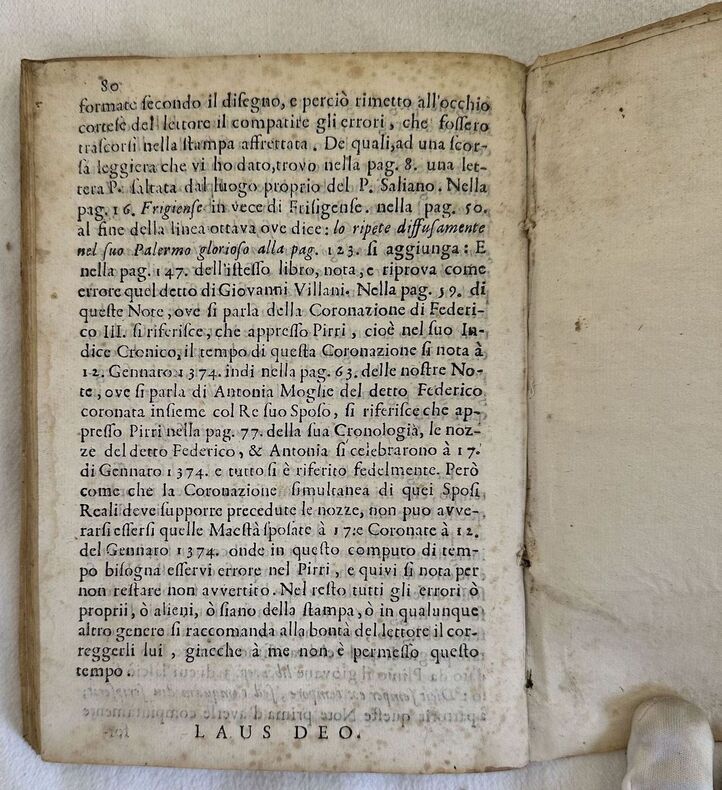 80
formate ſecondo il diſegno, e perciò rimetto all'occhio
corteſe del lettore il compatire gli errori, che foſſero
traſcorſi nella ſtampa affrettata. De quali, ad una ſcor-
ſa leggiera che vi ho dato, trovo nella pag. 8. una let-
tera P. ſaltata dal luogo proprio del P. Saliano. Nella
pag. 16. Frigienſe in vece di Friſigenſe. nella pag. 50.
al fine della linea ottava ove dice: lo ripete diffuſamente
nel ſuo Palermo glorioſo alla pag. 123. ſi aggiunga: E
nella pag. 147. dell'iſteſſo libro, nota, e riprova come
errore quel detto di Giovanni Villani. Nella pag. 59. di
queſte Note, ove ſi parla della Coronazione di Federi-
co III. ſi riferiſce, che appreſſo Pirri, cioè nel ſuo In-
dice Cronico, il tempo di queſta Coronazione ſi nota à
12. Gennaro 1374. indi nella pag. 63. delle noſtre No-
te, ove ſi parla di Antonia Moglie del detto Federico
coronata inſieme col Re ſuo Spoſo, ſi riferiſce che ap-
preſſo Pirri nella pag. 77. della ſua Cronologia, le noz-
ze del detto Federico, & Antonia ſi celebrarono à 17.
di Gennaro 1374. e tutto ſi è riferito fedelmente. Però
come che la Coronazione ſimultanea di quei Spoſi
Reali deve ſupporre precedute le nozze, non puo avve-
rarſi eſſerſi quelle Maeſtà ſpoſate à 17: e Coronate à 12.
del Gennaro 1374. onde in queſto computo di tem-
po biſogna eſſervi errore nel Pirri, e quivi ſi nota per
non reſtare non avvertito. Nel reſto tutti gli errori ò
proprii, ò alieni, ò ſiano della ſtampa, ò in qualunque
altro genere ſi raccomanda alla bontà del lettore il cor-
reggerli lui, giacche à me non è permeſſo queſto
tempo.
LAUS DEO.